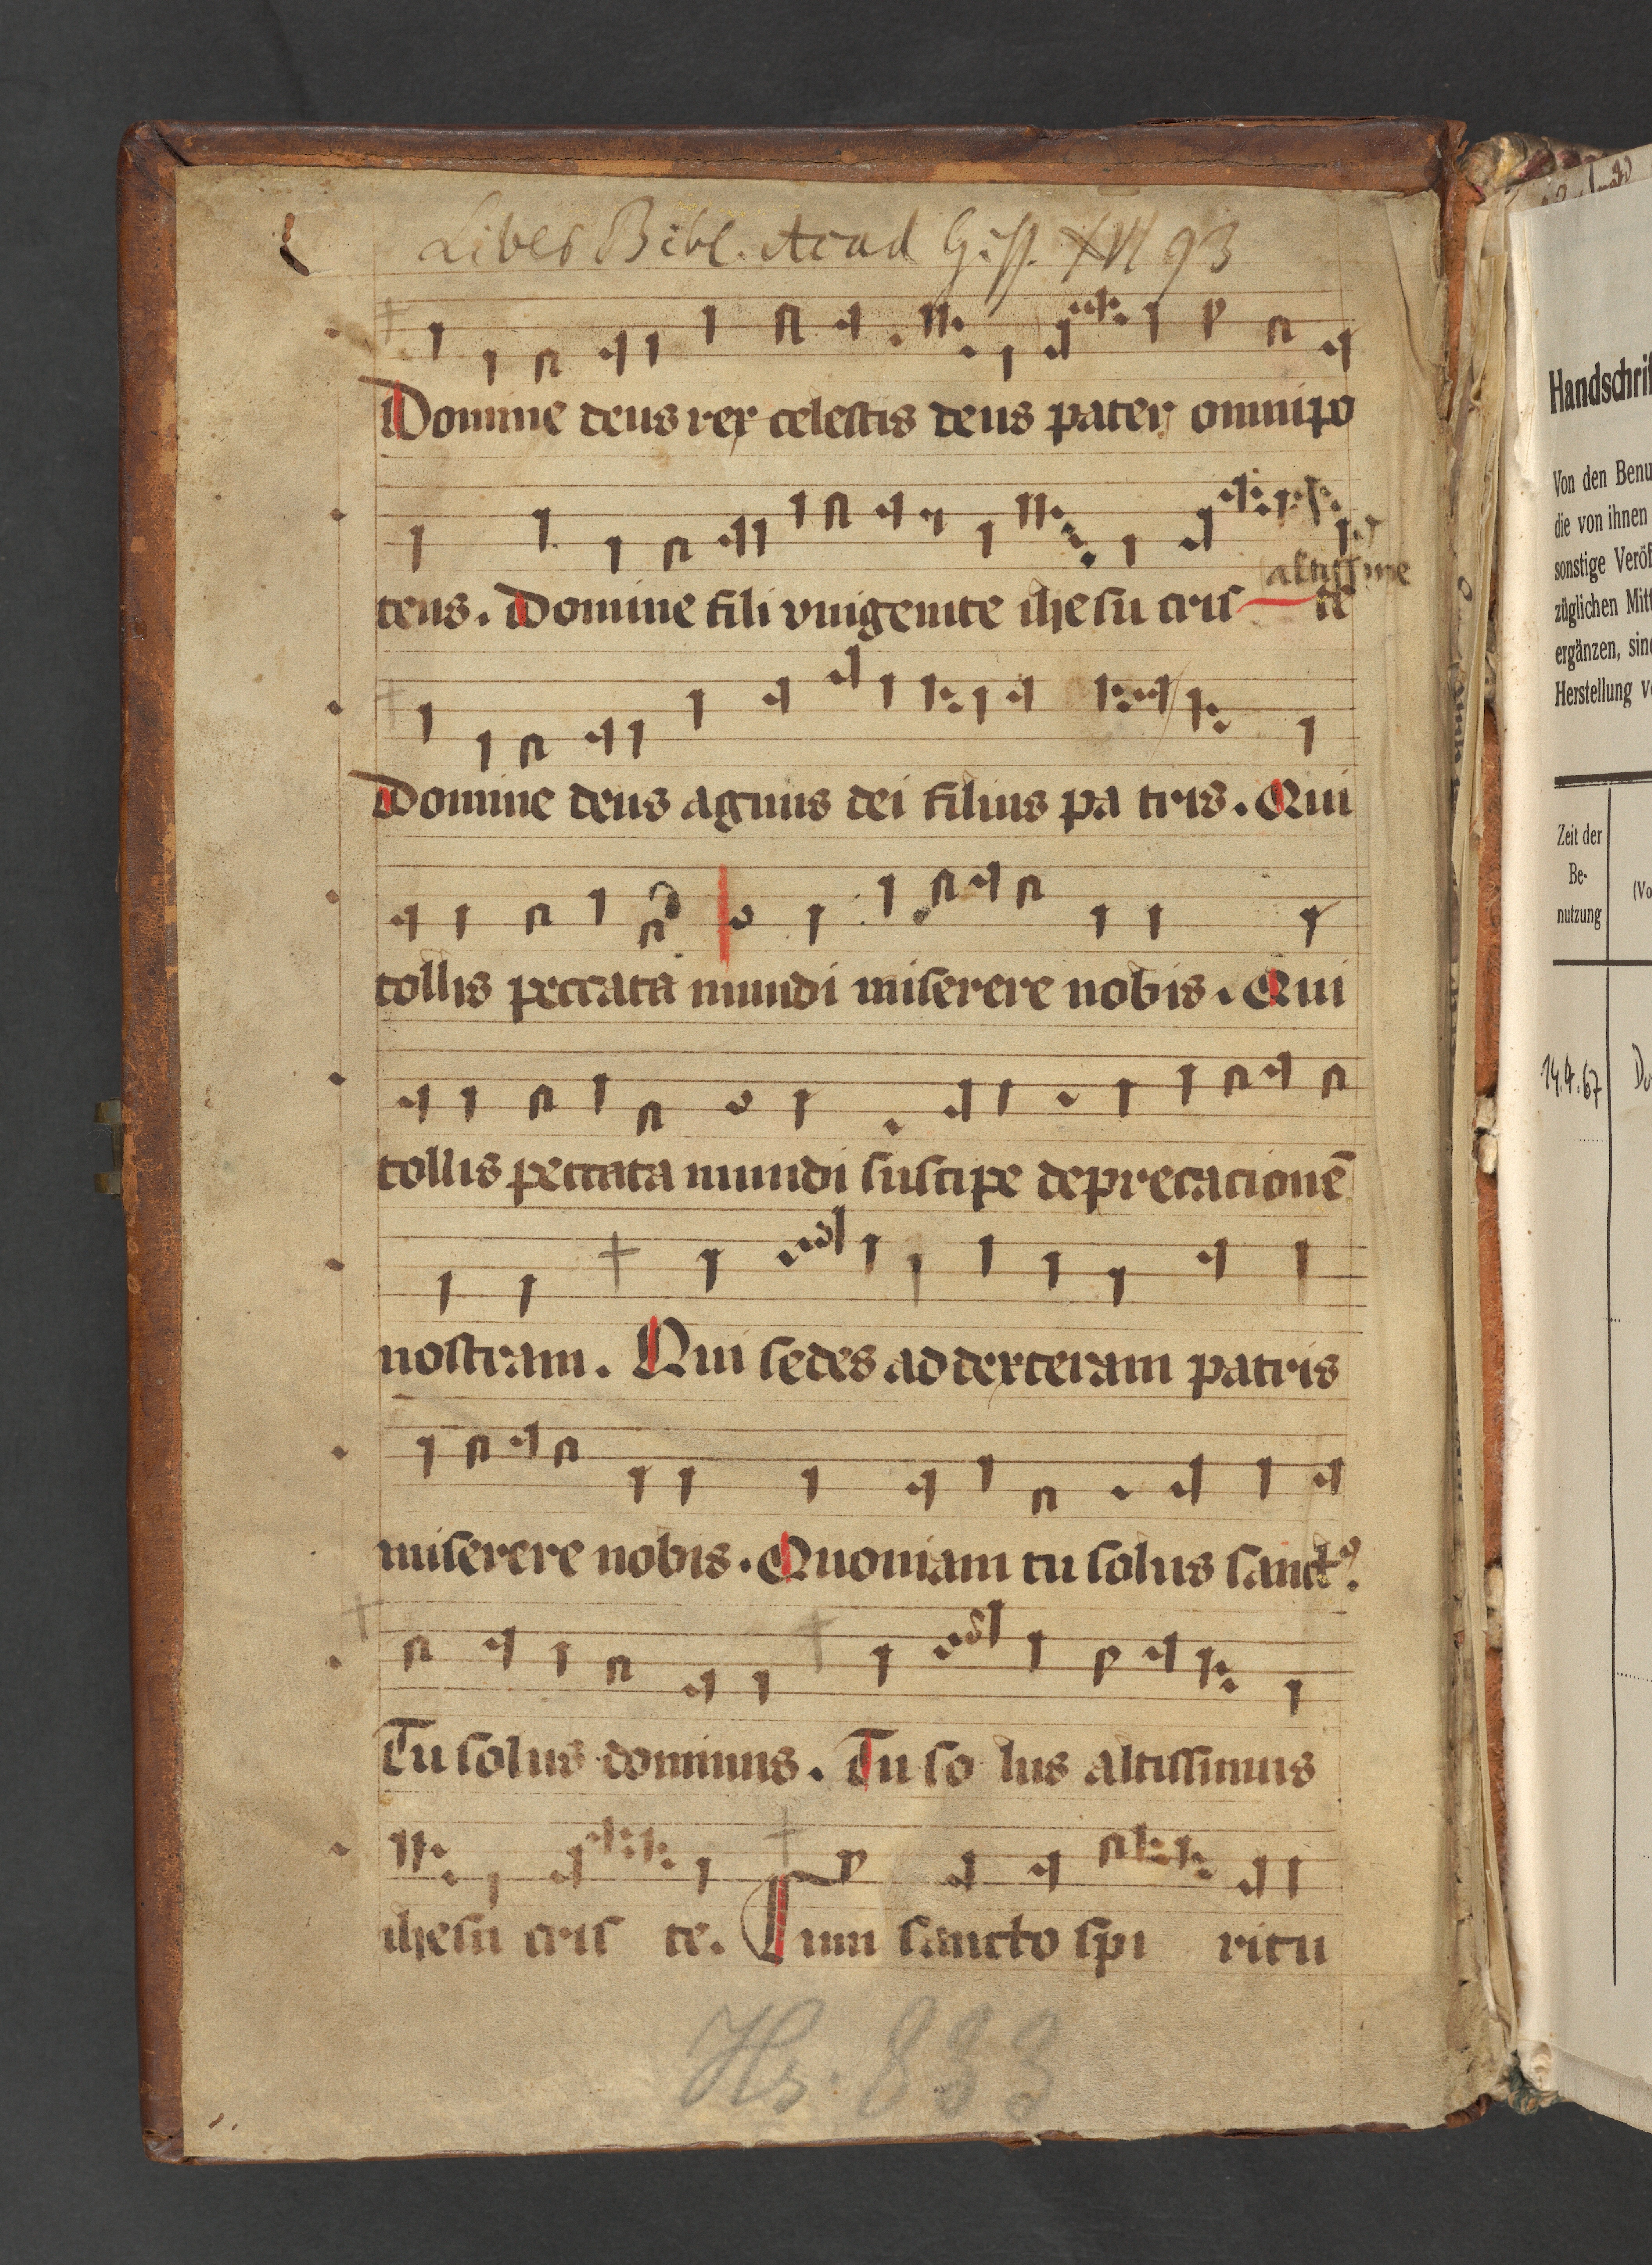 Liber Bibl. Acad Giss. XVI 93
Domine deus rex celestis deus pater omnipo
altissime
tens. Domine fili vnigenite ihesu cris te
Domine deus agnus dei filius pa tris. Qui
tollis peccata mundi miserere nobis. Qui
tollis peccata mundi suscipe deprecacionē
nostram. Qui sedes ad dexteram patris
miserere nobis. Quoniam tu solus sanctꝰ.
Tu solus dominus. Tu so lus altissimus
ihesu cris te. Cum sancto spi ritu
Hs. 833
Handschrif
Von den Benu
die von ihnen
sonstige Veröf
züglichen Mitt
ergänzen, sind
Herstellung v
Zeit der
Be-
nutzung
(Vo
14.9.67